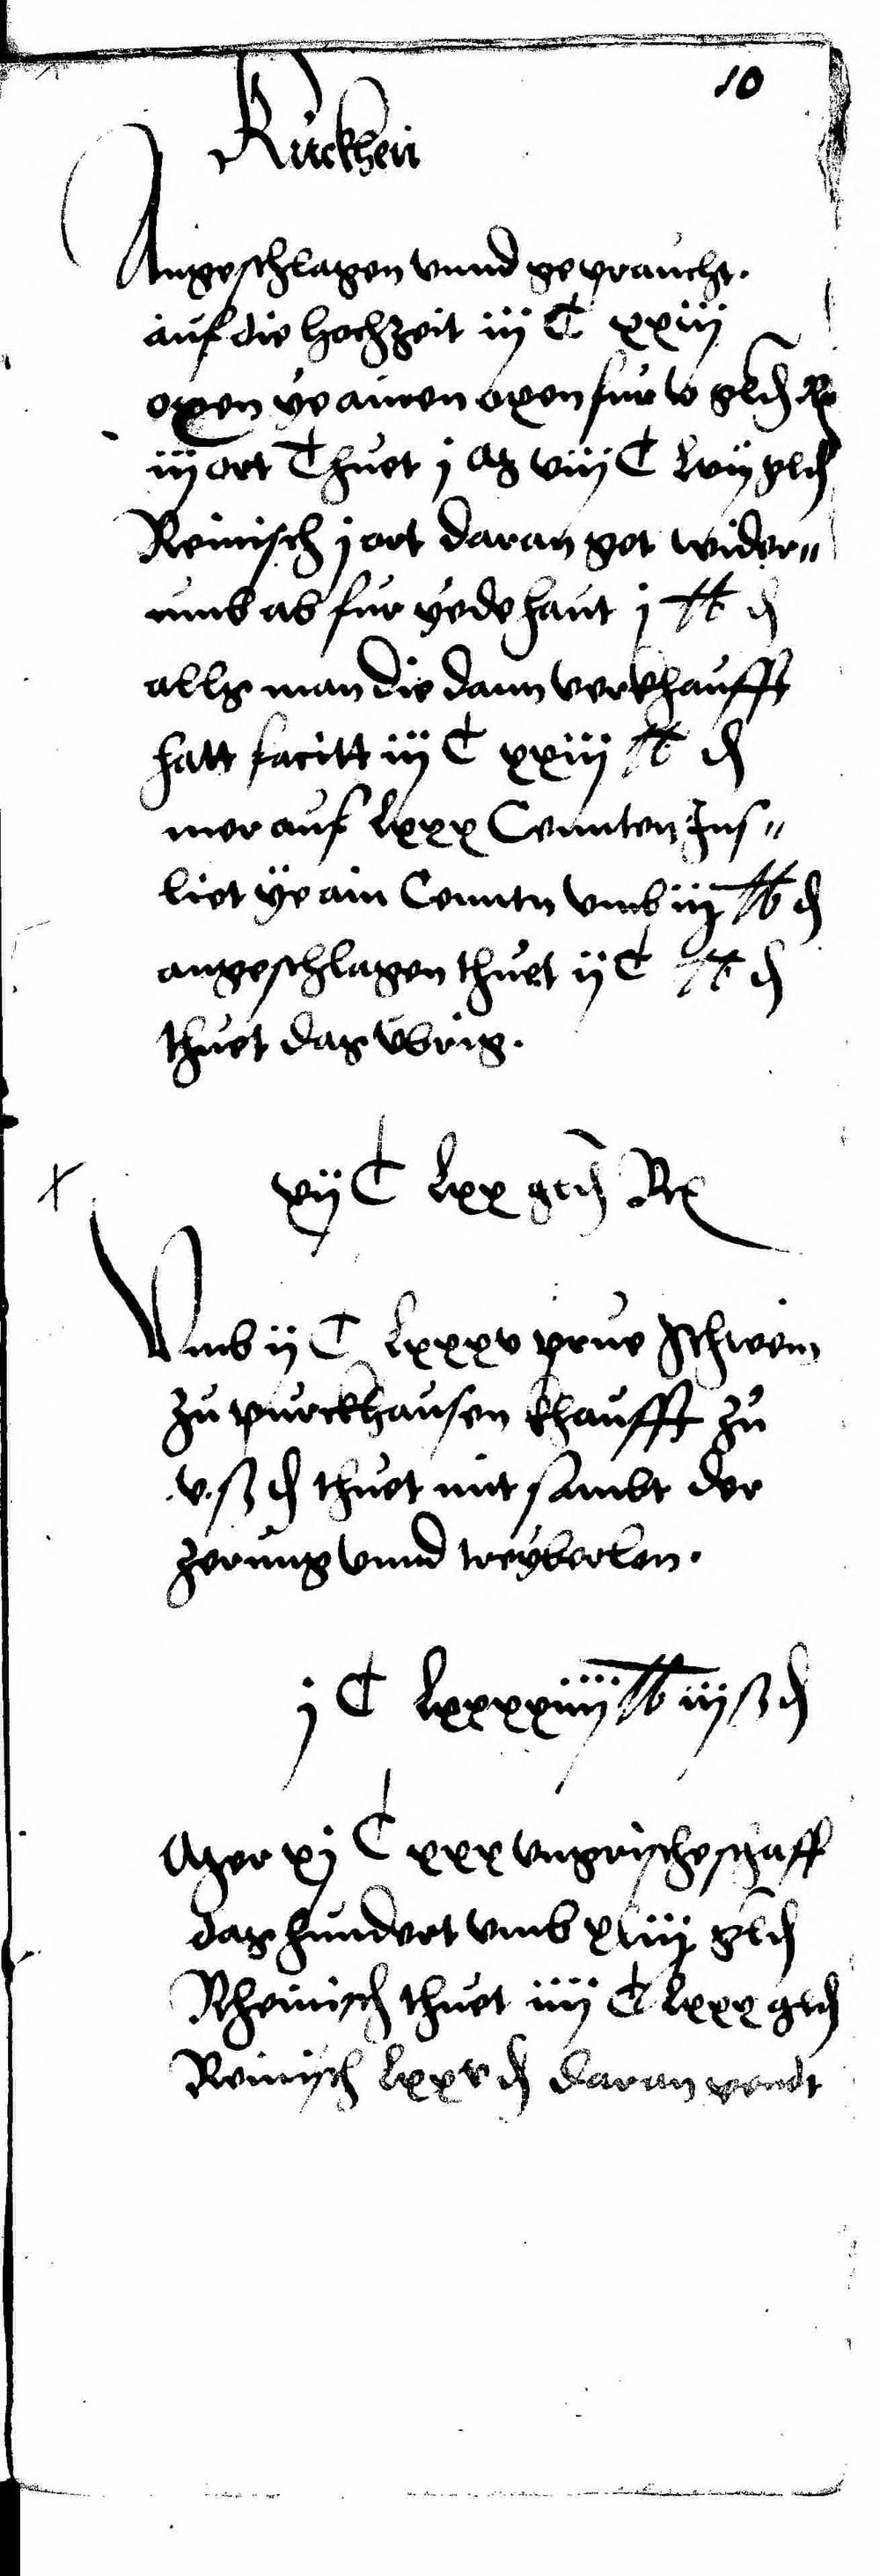 10
Kuchen
Angeschlagen vnnd gepraucht.
auf die Hochzeit iij C xxiij
oxen ye ainen oxen fur v gld Rx
iij ort Thuet j M viij C Lvij gld
Reinisch j ort daran get wider„
umb ab fur yede haut j lb d
alls man die dann verkhaufft
hatt facitt iij C xxiij lb d
mer auf Lxxx Cennten Ins„
liet ye ain Centn vmb iij lb d
angeschlagen thuet ij C lb d
thuet das übrig.
vij C Lxx gld Rx
Vmb ij C Lxxxv prue Schwein
zu purckhausen khaufft zu
.v. ß d thuet mit sambt der
zerung vnnd treyberlon.
j C Lxxxxiiij lb iij ß d
Mer xj C xxx vngrische schaff
das hundert vmb xliij gld
Rheinisch thuet iiij C Lxxx gld
Reinisch Lxxv d daran